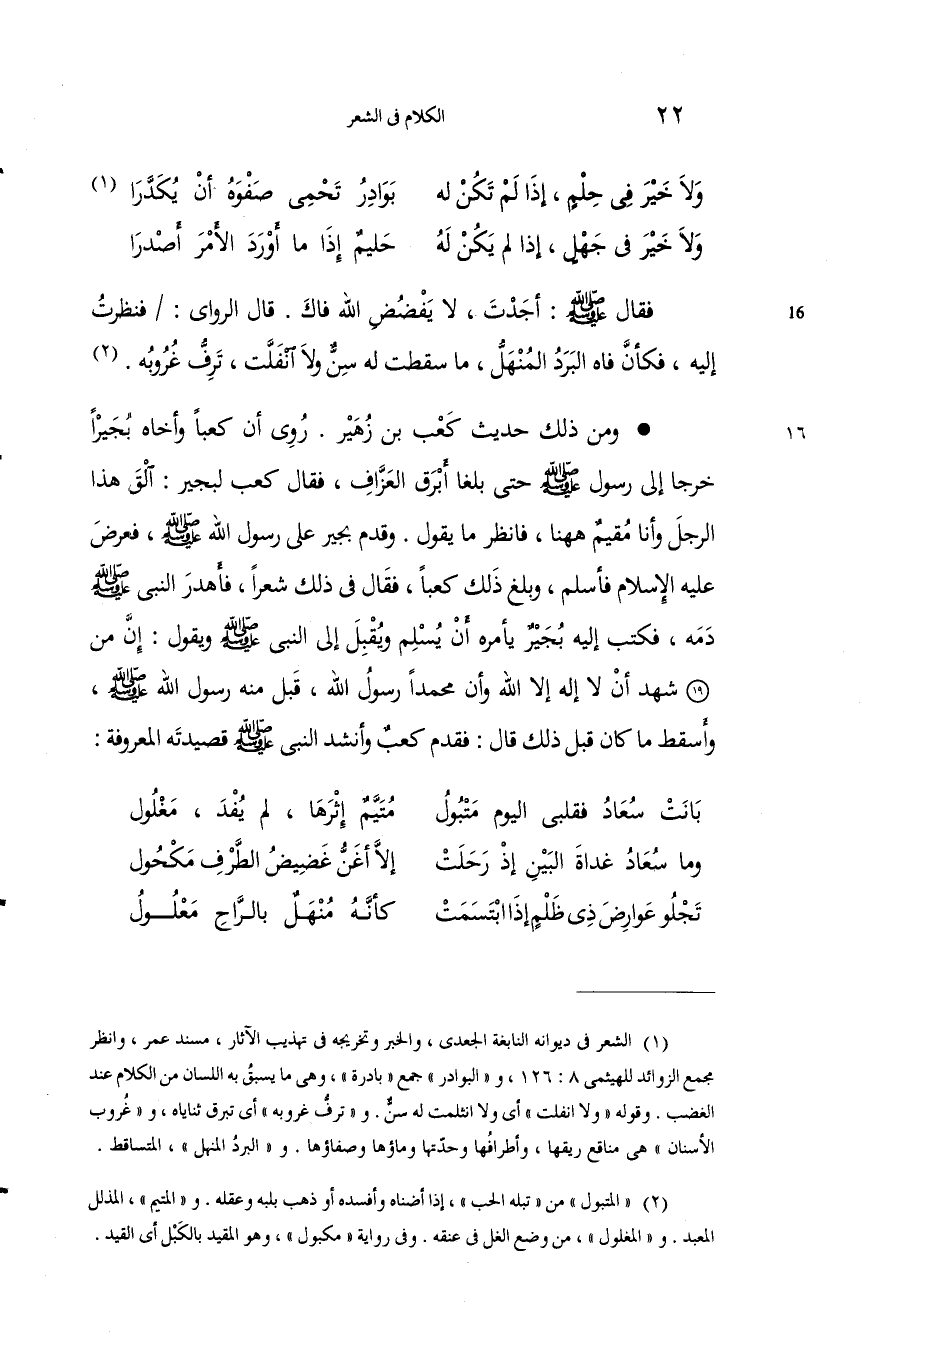 ٢٢ الكلام فى الشعر
وَلاَ خَيْرَ فِى حِلْمٍ ، إذَا لَمْ تَكُنْ له بَوَادِرُ تَحْمِى صَفْوَهُ أنْ يُكَدَّرَا (١)
وَلاَ خَيْرَ فى جَهْلٍ ، إذا لم يَكُنْ لَهُ حَليمٌ إذَا ما أَوْرَدَ الأَمْرَ أَصْدرَا
16 فقال ﷺ : أجَدْتَ ، لا يَفْضُضِ الله فاكَ . قال الرواى : / فنظرتُ
إليه ، فكأنَّ فاه البَرَدُ المُنْهَلُّ ، ما سقطت له سِنٌّ ولاَ ٱنْفَلَّت ، تَرِفُّ غُرُوبُه . (٢)
١٦ ● ومن ذلك حديث كَعْب بن زُهَيْر . رُوِى أن كعباً وأخاه بُجَيْراً
خرجا إلى رسول ﷺ حتى بلغا أَبْرَق العَزَّافِ ، فقال كعب لبجير : ٱلْقَ هذا
الرجلَ وأنا مُقيمٌ ههنا ، فانظر ما يقول . وقدم بجير على رسول الله ﷺ ، فعرضَ
عليه الإسلام فأسلم ، وبلغ ذَلك كعباً ، فقَال فى ذلك شعراً ، فأَهدرَ النبى ﷺ
دَمَه ، فكتب إليه بُجَيْرٌ يأمره أَنْ يُسْلِم ويُقْبِلَ إلى النبى ﷺ ويقول : إنَّ من
⑲ شهد أنْ لا إله إلا الله وأن محمداً رسولُ الله ، قَبل منه رسول الله ﷺ ،
وأَسقط ما كان قبل ذلك قال : فقدم كعبٌ وأنشد النبى ﷺ قصيدتَه المعروفة :
بَانَتْ سُعَادُ فقلبى اليوم مَتْبُولُ مُتَيَّمٌ إثْرَهَا ، لم يُفْدَ ، مَغْلُول
وما سُعَادُ غداةَ البَيْنِ إذْ رَحَلَتْ إلاَّ أغَنُّ غَضِيضُ الطَّرْفِ مَكْحُول
تَجْلُو عَوارِضَ ذِى ظَلْمٍ إذَا ابْتَسَمَتْ كأنَّهُ مُنْهَلٌ بالرَّاحِ مَعْلُولُ
(١) الشعر فى ديوانه النابغة الجعدى ، والخبر وتخريجه فى تهذيب الآثار ، مسند عمر ، وانظر
مجمع الزوائد للهيثمى ٨ : ١٢٦ ، و « البوادر » جمع « بادرة » ، وهى ما يسبقُ به اللسان من الكلام عند
الغضب . وقوله « ولا انفلت » أى ولا انثلمت له سنٌّ . و « ترفُّ غروبه » أى تبرق ثناياه ، و « غُروب
الأسنان » هى مناقع ريقها ، وأطرافُها وحدّتها وماؤها وصفاؤها . و « البردُ المنهل » ، المتساقط .
(٢) « المتبول » من « تبله الحب » ، إذا أضناه وأفسده أو ذهب بلبه وعقله . و « المتيم » ، المذلل
المعبد . و « المغلول » ، من وضع الغل فى عنقه . وفى رواية « مكبول » ، وهو المقيد بالكَبْل أى القيد .